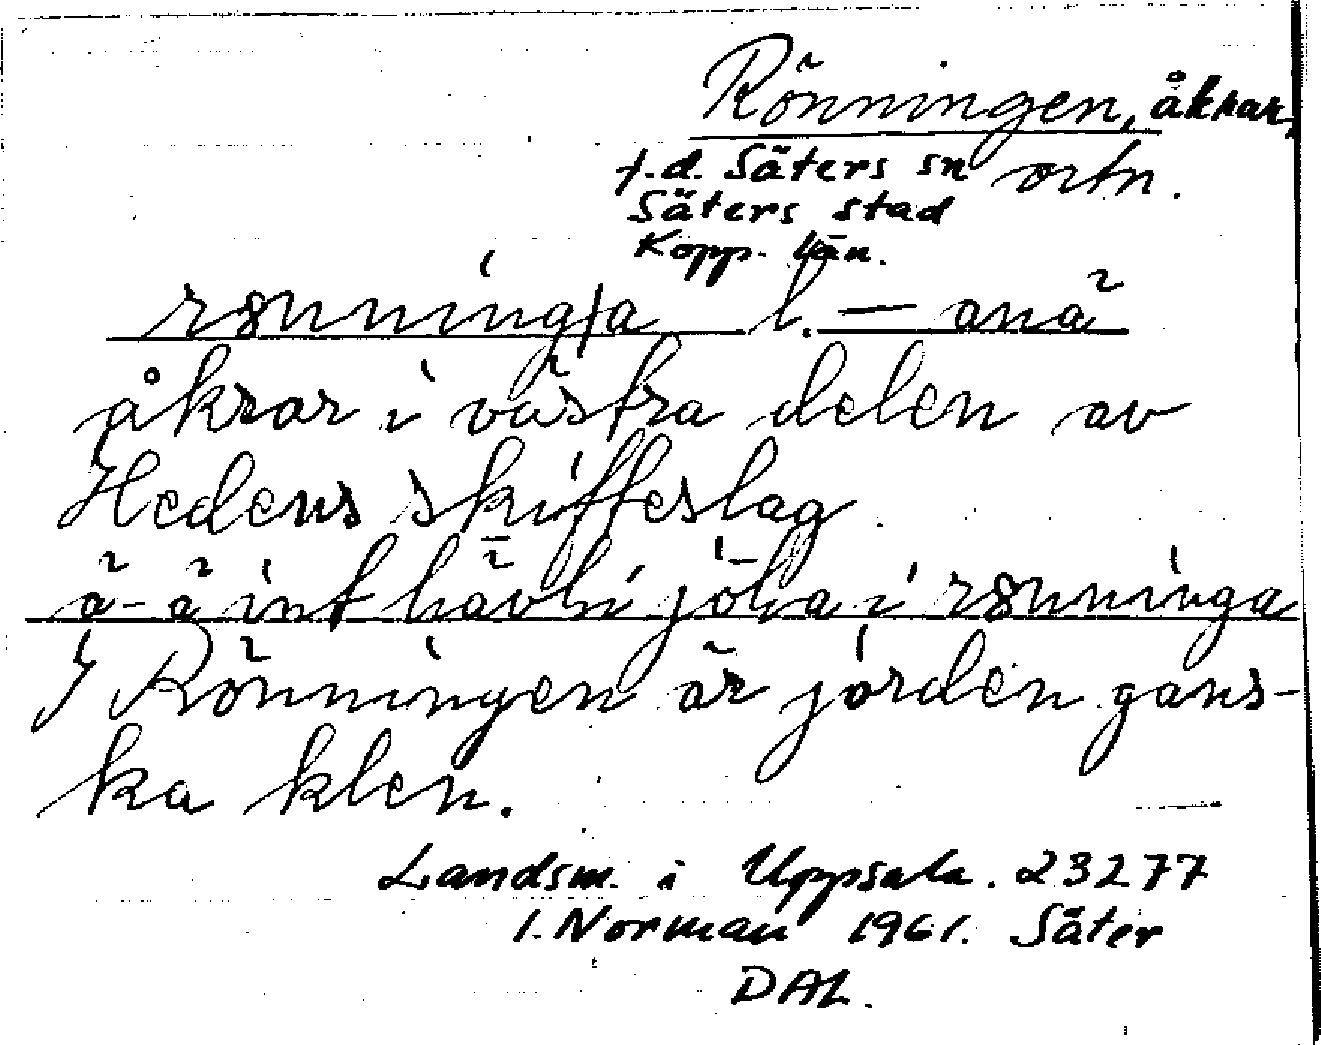 Rönningen, åkrar,
f.d. Säters sn ortn.
Säters stad
Kopp. län.
rönning/a l. – anä
åkrar i västra delen av
Hedens skifteslag.
ä-ä int hävli jöḷa i rönninga
I Rönningen är jorden gans-
ka klen.
Landsm. i Uppsala. 23277
I. Norman 1961. Säter
DAL.